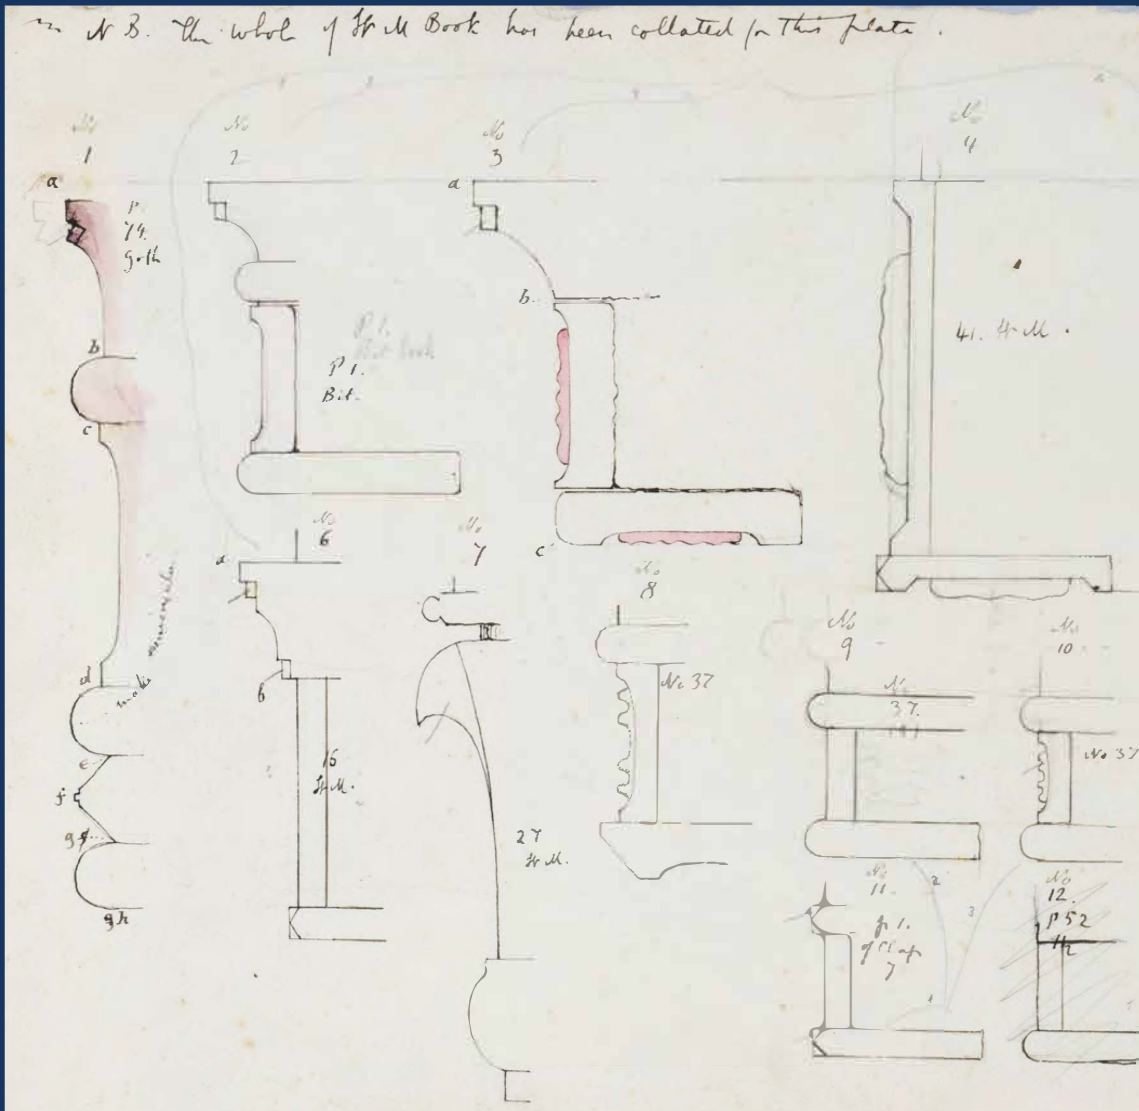 N B. The whole of St M Book has been collated for this plate.
No
1
a
P.
74.
Goth
b
c
d
e
f
g
g h
No
2
P 1.
Bit book
P 1.
Bit.
No
3
a
b.
c
No
4
41. St M.
No
6
a
b
16
St M.
No
7
27
St M.
No
8
No 37
No
9
No
37.
No
10
No 37
No
11.
2
3
No
12.
P 52